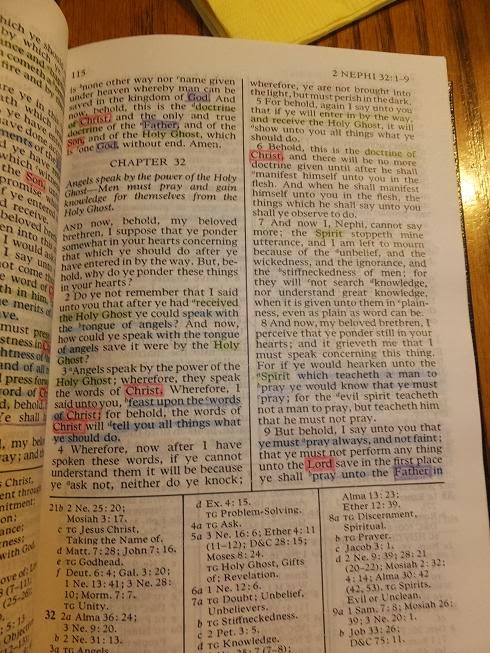 115
2 NEPHI 32:1–9
is ᵃnone other way nor ᵉname given
under heaven whereby man can be
saved in the kingdom of God. And
now, behold, this is the ᵈdoctrine
of Christ, and the only and true
doctrine of the ᵉFather, and of the
Son, and of the Holy Ghost, which
is ᶠone God, without end. Amen.
CHAPTER 32
Angels speak by the power of the Holy
Ghost—Men must pray and gain
knowledge for themselves from the
Holy Ghost.
AND now, behold, my beloved
brethren, I suppose that ye ponder
somewhat in your hearts concerning
that which ye should do after ye
have entered in by the way. But, be-
hold, why do ye ponder these things
in your hearts?
2 Do ye not remember that I said
unto you that after ye had ᵃreceived
the Holy Ghost ye could speak with
the ᵇtongue of angels? And now,
how could ye speak with the tongue
of angels save it were by the Holy
Ghost?
3 ᵃAngels speak by the power of the
Holy Ghost; wherefore, they speak
the words of Christ. Wherefore, I
said unto you, ᵇfeast upon the ᶜwords
of Christ; for behold, the words of
Christ will ᵈtell you all things what
ye should do.
4 Wherefore, now after I have
spoken these words, if ye cannot
understand them it will be because
ye ᵃask not, neither do ye knock;
wherefore, ye are not brought into
the light, but must perish in the dark.
5 For behold, again I say unto you
that if ye will enter in by the way,
and receive the Holy Ghost, it will
ᵃshow unto you all things what ye
should do.
6 Behold, this is the doctrine of
Christ, and there will be no more
doctrine given until after he shall
ᵃmanifest himself unto you in the
flesh. And when he shall manifest
himself unto you in the flesh, the
things which he shall say unto you
shall ye observe to do.
7 And now I, Nephi, cannot say
more; the Spirit stoppeth mine
utterance, and I am left to mourn
because of the ᵃunbelief, and the
wickedness, and the ignorance, and
the ᵇstiffneckedness of men; for
they will ᶜnot search ᵈknowledge,
nor understand great knowledge,
when it is given unto them in ᵉplain-
ness, even as plain as word can be.
8 And now, my beloved brethren, I
perceive that ye ponder still in your
hearts; and it grieveth me that I
must speak concerning this thing.
For if ye would hearken unto the
ᵃSpirit which teacheth a man to
ᵇpray ye would know that ye must
ᶜpray; for the ᵈevil spirit teacheth
not a man to pray, but teacheth him
that he must not pray.
9 But behold, I say unto you that
ye must ᵃpray always, and not faint;
that ye must not perform any thing
unto the Lord save in the first place
ye shall ᵇpray unto the Father in
21b 2 Ne. 25: 20;
Mosiah 3: 17.
c TG Jesus Christ,
Taking the Name of,
d Matt. 7: 28; John 7: 16.
e TG Godhead.
f Deut. 6: 4; Gal. 3: 20;
1 Ne. 13: 41; 3 Ne. 28:
10; Morm. 7: 7.
TG Unity.
32 2a Alma 36: 24;
3 Ne. 9: 20.
b 2 Ne. 31: 13.
3a TG Angels.
d Ex. 4: 15.
TG Problem-Solving.
4a TG Ask.
5a 3 Ne. 16: 6; Ether 4: 11
(11–12); D&C 28: 15;
Moses 8: 24.
TG Holy Ghost, Gifts
of; Revelation.
6a 1 Ne. 12: 6.
7a TG Doubt; Unbelief,
Unbelievers.
b TG Stiffneckedness.
c 2 Pet. 3: 5.
d TG Knowledge.
Alma 13: 23;
Ether 12: 39.
8a TG Discernment,
Spiritual.
b TG Prayer.
c Jacob 3: 1.
d 2 Ne. 9: 39; 28: 21
(20–22); Mosiah 2: 32;
4: 14; Alma 30: 42
(42, 53). TG Spirits,
Evil or Unclean.
9a 1 Sam. 7: 8; Mosiah 26:
39; 3 Ne. 20: 1.
b Job 33: 26;
D&C 75: 11.